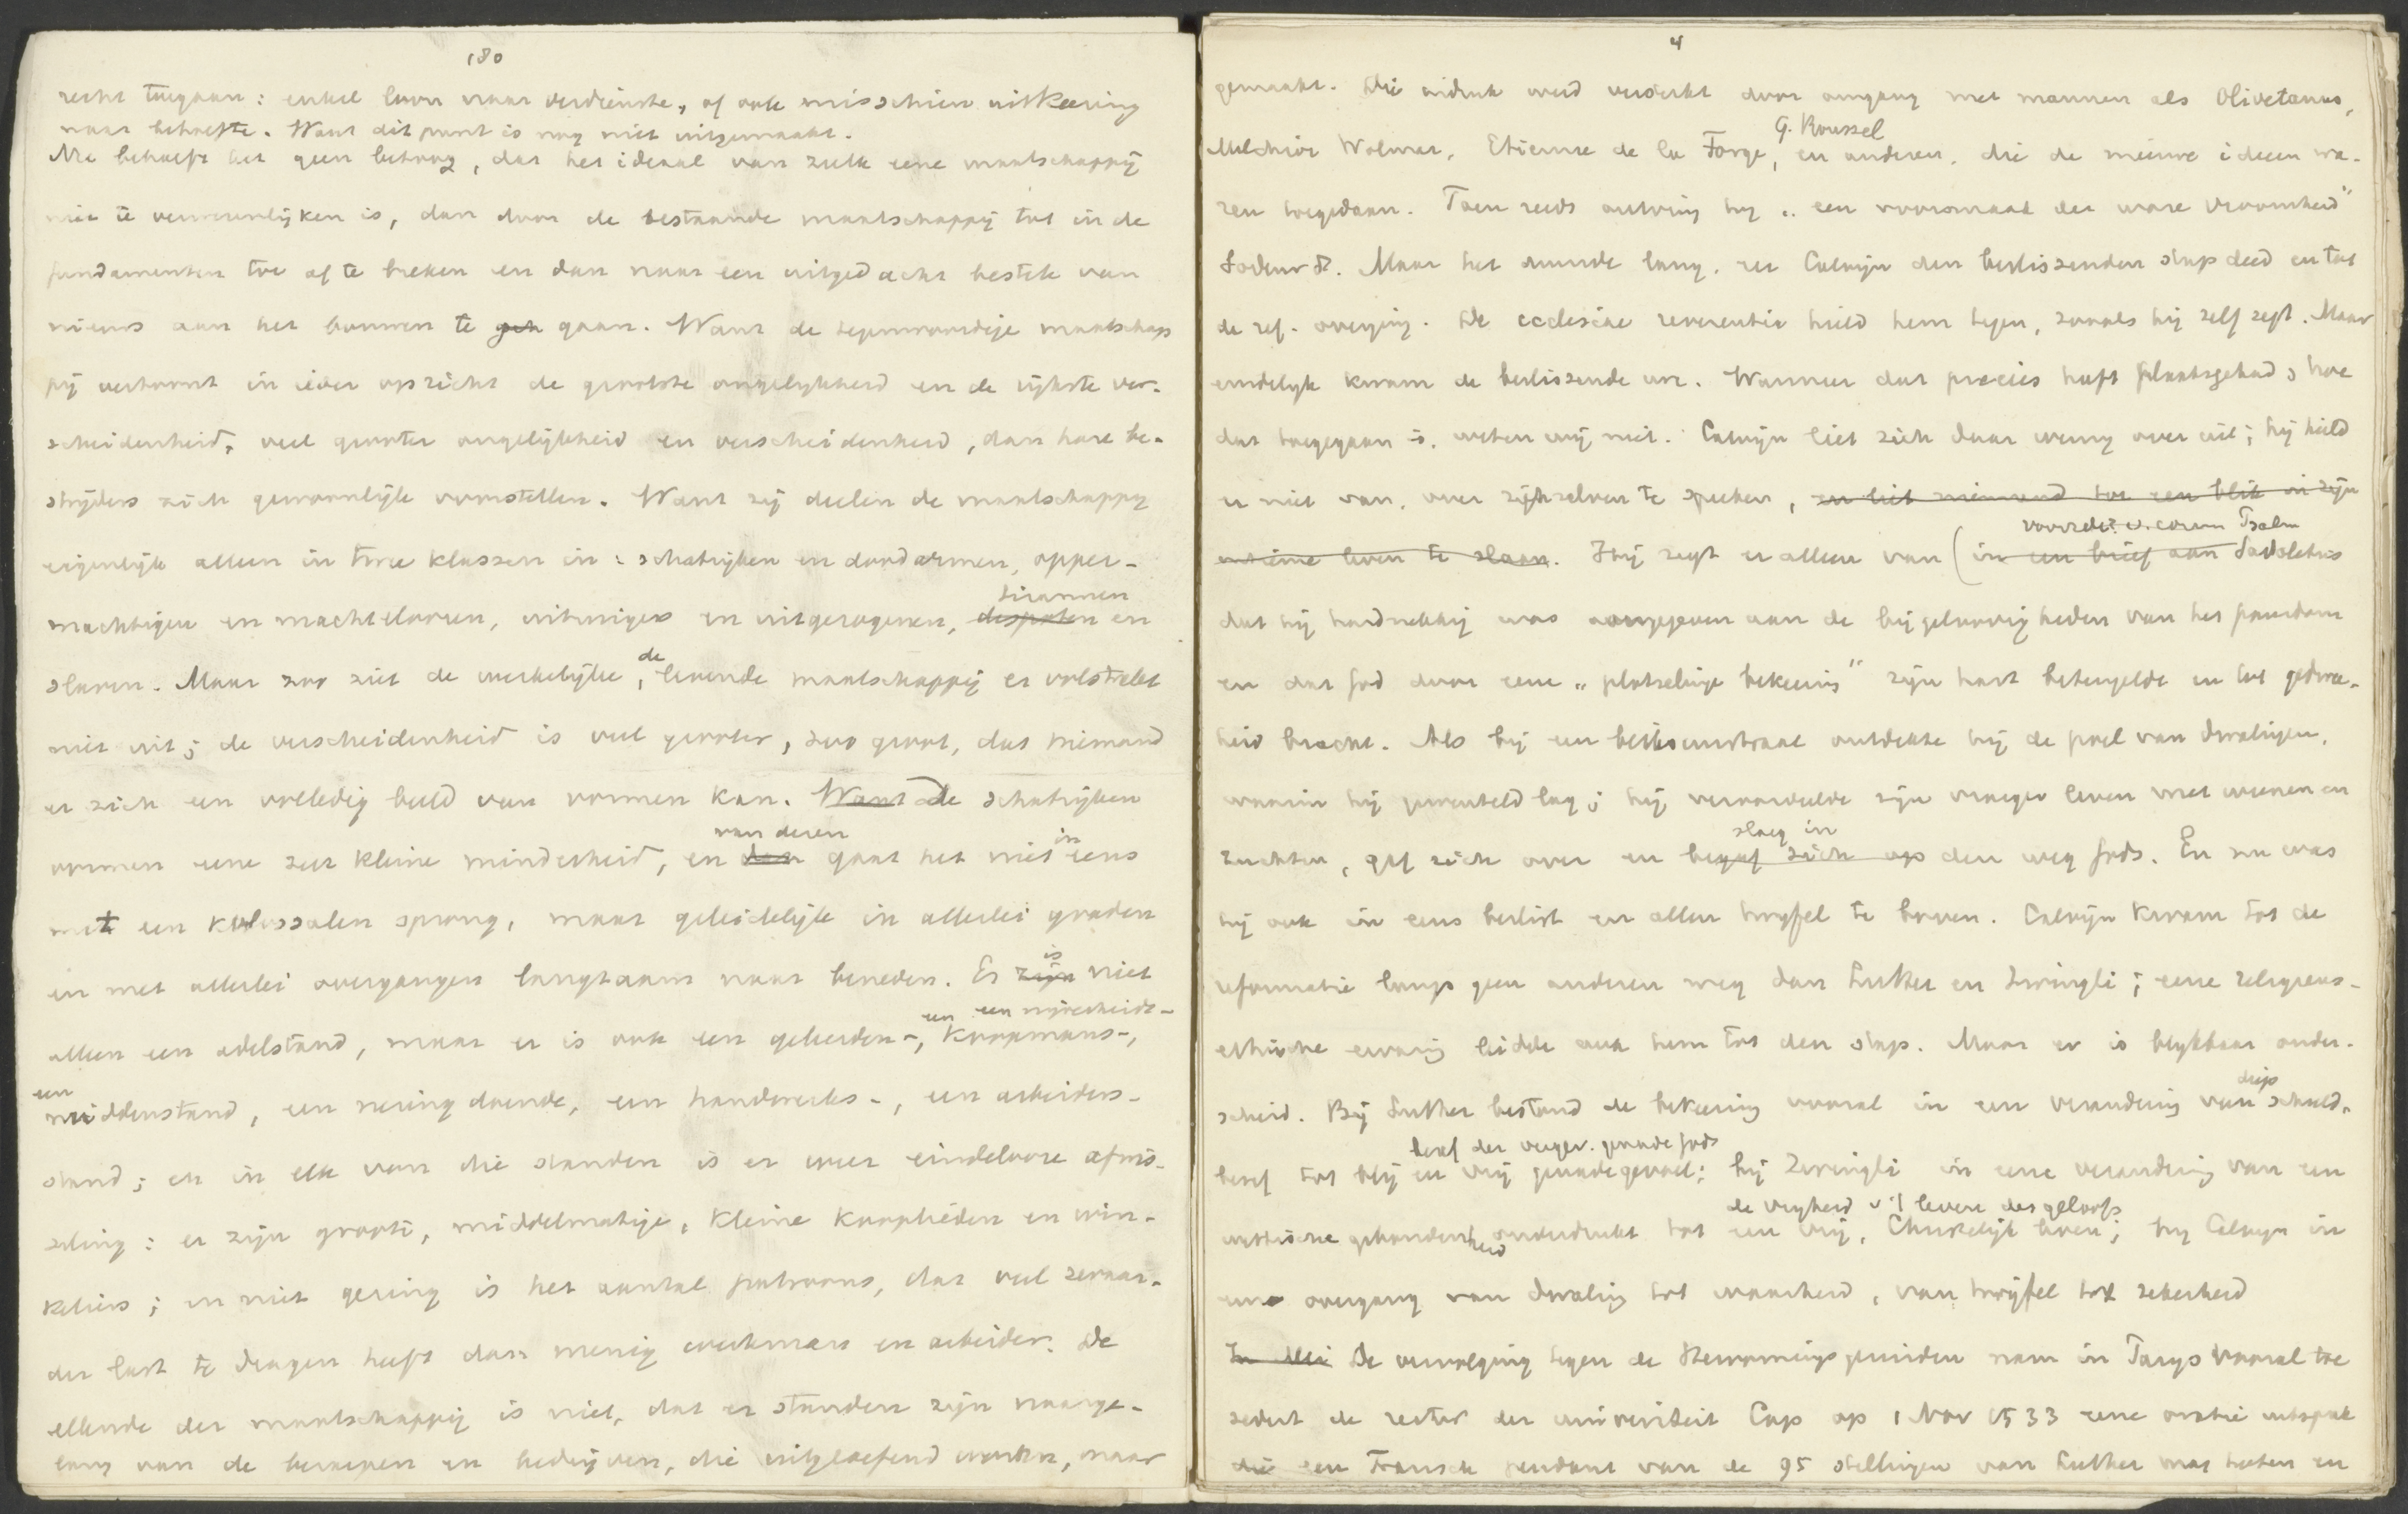 180
recht toegaan: enkel loon naar verdienste, of ook misschien uitkeering
naar behoefte. Want dit punt is nog niet uitgemaakt.
Nu behoeft het geen betoog, dat het ideaal van zulk eene maatschappij
niet te verwezenlijken is, dan door de bestaande maatschappij tot in de
fundamenten toe af te breken en dan naar een uitgedacht bestek van
nieuws aan het bouwen te gaan. Want de tegenwoordige maatschap
pij vertoont in ieder opzicht de grootste ongelijkheid en de rijkste ver-
scheidenheid, veel grooter ongelijkheid en verscheidenheid, dan hare be-
strijders zich gewoonlijk voorstellen. Want zij deelen de maatschappij
eigenlijk alleen in twee klassen in: schatrijken en doodarmen, opper-
machtigen en machteloozen, uitzuigers en uitgezogenen, despoten tirannen en
slaven. Maar zoo ziet de werkelijke, de levende maatschappij er volstrekt
niet uit; de verscheidenheid is veel grooter, zoo groot, dat niemand
er zich een volledig beeld van vormen kan. Want De schatrijken
vormen eene zeer kleine minderheid, en dan van deren gaat het niet in eens
met een kolossalen sprong, maar geleidelijk in allerlei graden
en met allerlei overgangen langzaam naar beneden. Er zijn is niet
alleen een adelstand, maar er is ook een geleerden-, een koopmans-, een nijverheids-
een middenstand, een neringdoende, een handwerks-, een arbeiders-
stand; en in elk van die standen is er weer eindelooze afwis-
seling: er zijn groote, middelmatige, kleine kooplieden en win-
keliers; en niet gering is het aantal patroons, dat veel zwaar-
der last te dragen heeft dan menig werkman en arbeider. De
ellende der maatschappij is niet, dat er standen zijn naarge-
lang van de beroepen en bedrijven, die uitgeoefend worden, maar

4
gemaakt. Die indruk werd versterkt door omgang met mannen als Olivetanus,
Melchior Wolmar, Etienne de la Forge, G. Roussel en anderen, die de nieuwe ideeen wa-
ren toegedaan. Toen reeds ontving hij „een voorsmaak der ware vroomheid"
Maar het duurde lang, eer Calvijn den beslissenden stap deed en tot
de ref. overging. De ecclesiae reverentia hield hem tegen, zooals hij zelf zegt. Maar
eindelijk kwam de beslissende ure. Wanneer dat precies heeft plaatsgehad, hoe
dat toegegaan is, weten wij niet. Calvijn liet zich daar weinig over uit; hij hield
er niet van, over zichzelven te spreken, en liet niemand toe een blik in zijn
intieme leven te slaan. Hij zegt er alleen van (in een brief aan Sadoletus voorrede comm Psalm
dat hij hardnekkig was overgegeven aan de bijgeloovigheden van het pausdom
en dat God door eene „plotselinge bekeering" zijn hart beteugelde en tot gedwee-
heid bracht. Als bij een bliksemstraal ontdekte hij de poel van dwalingen,
waarin hij gewenteld lag; hij veroordeelde zijn vroeger leven met weenen en
zuchten, gaf zich over en begaf zich op sloeg in den weg Gods. En nu was
hij ook in eens beslist en allen twijfel te boven. Calvijn kwam tot de
reformatie langs geen anderen weg dan Luther en Zwingli; eene religieus-
ethische ervaring leidde ook hem tot den stap. Maar er is blijkbaar onder-
scheid. Bij Luther bestond de bekeering vooral in een verandering van diep schuld-
besef tot blij en vrij genadegevoel; besef der vergev. genade Gods bij Zwingli in eene verandering van een
wettische gebondenheid onderdrukt tot een vrij, Christelijk leven; de vrijheid v. 't leven des geloofs bij Calvijn in
eene overgang van dwaling tot waarheid, van twijfel tot zekerheid
De vervolging tegen de Hervormingsgezinden nam in Parijs vooral toe
sedert de rector der universiteit Cop op 1 Nov 1533 eene oratie uitsprak
die een Fransch pendant van de 95 stellingen van Luther mag heeten en